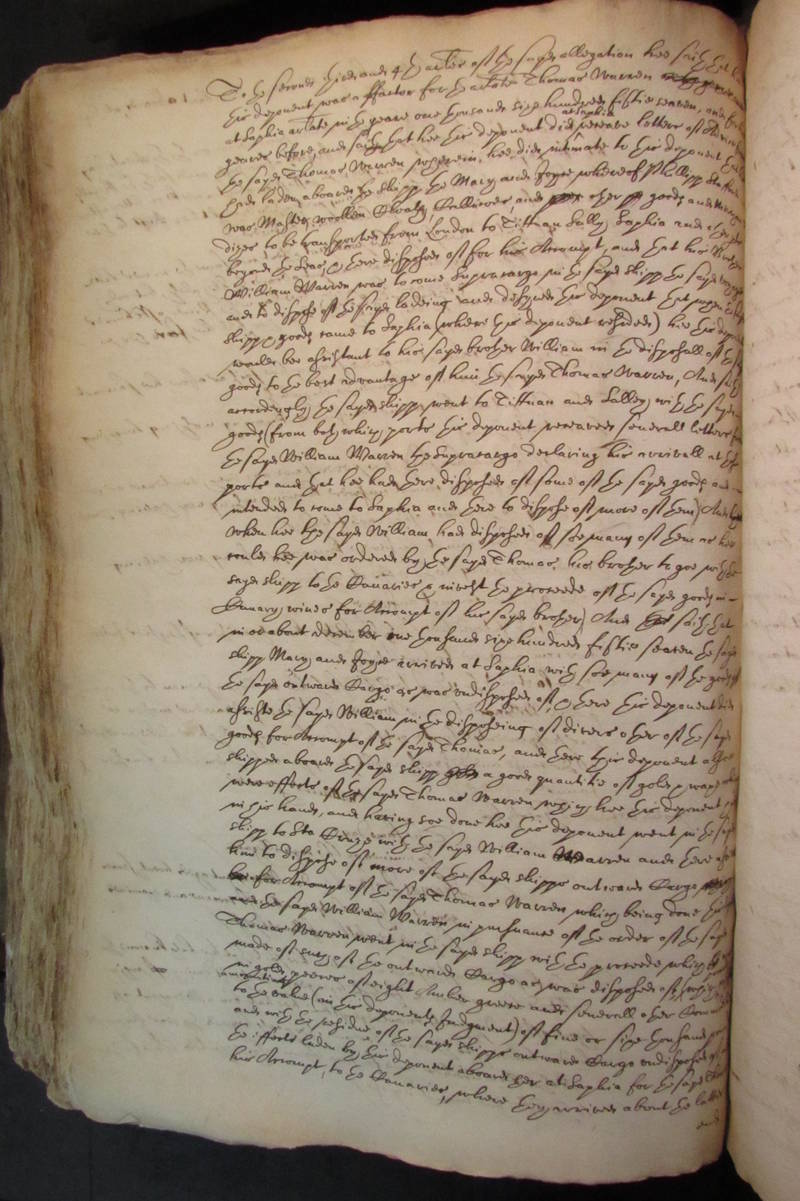 To the second third and 4th articles of the sayd allegation hee saith that
this deponent was a ffactor for the arlate Thomas Warren
at Saphia arlate in the yeare one thousand sixe hundred fiftie seaven, and
yeares before, and saith that hee this deponent did at Saphia receave letters of
the sayd Thomas Warren wherein hee did intimate to this deponent that
had laden aboard the shipp the Mary and Joyce whereof Phillipp
was Master, woollen Cloath, Callicoes and other goods and
dizes to be transported from London to Tittuan Sally Saphia and other
beyond the Seas, & there disposed of for his Accompt, and that his brother
William Warren was to come Supracargo in the sayd shipp the sayd voyage
and to dispose of the sayd ladeing and desyred this deponent that when the
shipp & goods came to Saphia (where this deponent resided) hee this deponent
would bee assistant to his sayd brother William in the disposall of the
goods to the best advantage of him the sayd Thomas Warren, And saith
accordingly the sayd shipp went to Tittuan and Salley with the sayd
goods (from both which ports this deponent receaved severall letters from
the sayd William Warren the Supracargo declaring his arrivall at the
ports and that hee had there disposed of some of the sayd goods and
intended to come to Saphia and there to dispose of more of them) And that
when hee the sayd William had disposed of soe many of them as hee
could hee was ordered by the sayd Thomas his brother to goe with the
sayd shipp to the Canaries & invest the proceede of the sayd goods in
Canary wines for Accompt of his sayd brother) And saith that
in or about december one thousand sixe hundred fiftie seaven the sayd
shipp Mary and Joyce arrived at Saphia with soe many of the goods of
the sayd outward Cargo as was undisposed of, & there this deponent did
assiste the sayd William in the disposeing of divers other of the sayd
goods for Accompt of the sayd Thomas, and there this deponent alsoe
shipped aboard the sayd shipp a good quantitie of gold &
were effects of the sayd Thomas Warren which hee this deponent
in his hands, and having soe done hee this deponent went in the sayd
shipp to Sta Cruze with the sayd William Warren and there
him to dispose of more of the sayd shipps outward Cargo
for Accompt of the sayd Thomas Warren which being done this
and the sayd William Warren in pursuance of the order of the sayd
Thomas Warren went in the sayd shipp with the proceede which
made of such of the outward Cargo as was disposed of
in gold peeces of eight Amber greece and severall other
amounting to the value (in this deponents Judgment) of five or sixe thousand
and with the residue of the sayd shipps outward Cargo undisposed of
the effects laden by this deponent aboard her at Saphia for the sayd
his Accompt, to the Canaries, where they arrived about the latter
end